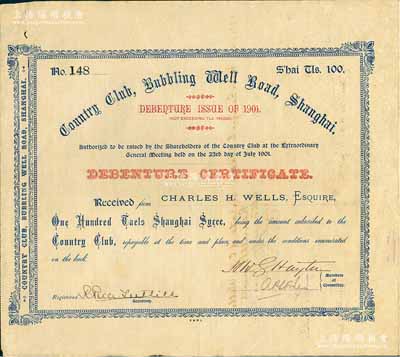 No. 148
S'hai Tls. 100.
Country Club, Bubbling Well Road, Shanghai.
DEBENTURE ISSUE OF 1901.
Authorized to be raised by the Shareholders of the Country Club at the Extraordinary
General Meeting held on the 23rd day of July 1901.
DEBENTURE CERTIFICATE.
Received from CHARLES H. WELLS, ESQUIRE,
One Hundred Taels Shanghai Sycee, being the amount subscribed to the
Country Club, repayable at the time and place, and under the conditions enumerated
on the back.
Members
of
Committee.
Registered
Secretary.
COUNTRY CLUB, BUBBLING WELL ROAD, SHANGHAI.